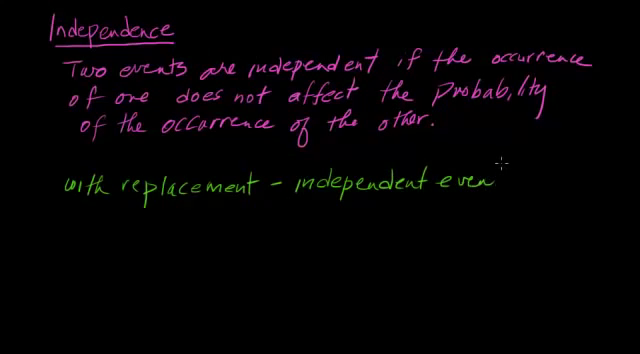 Independence
Two events are independent if the occurrence
of one does not affect the Probability
of the occurrence of the other.
with replacement - independent even